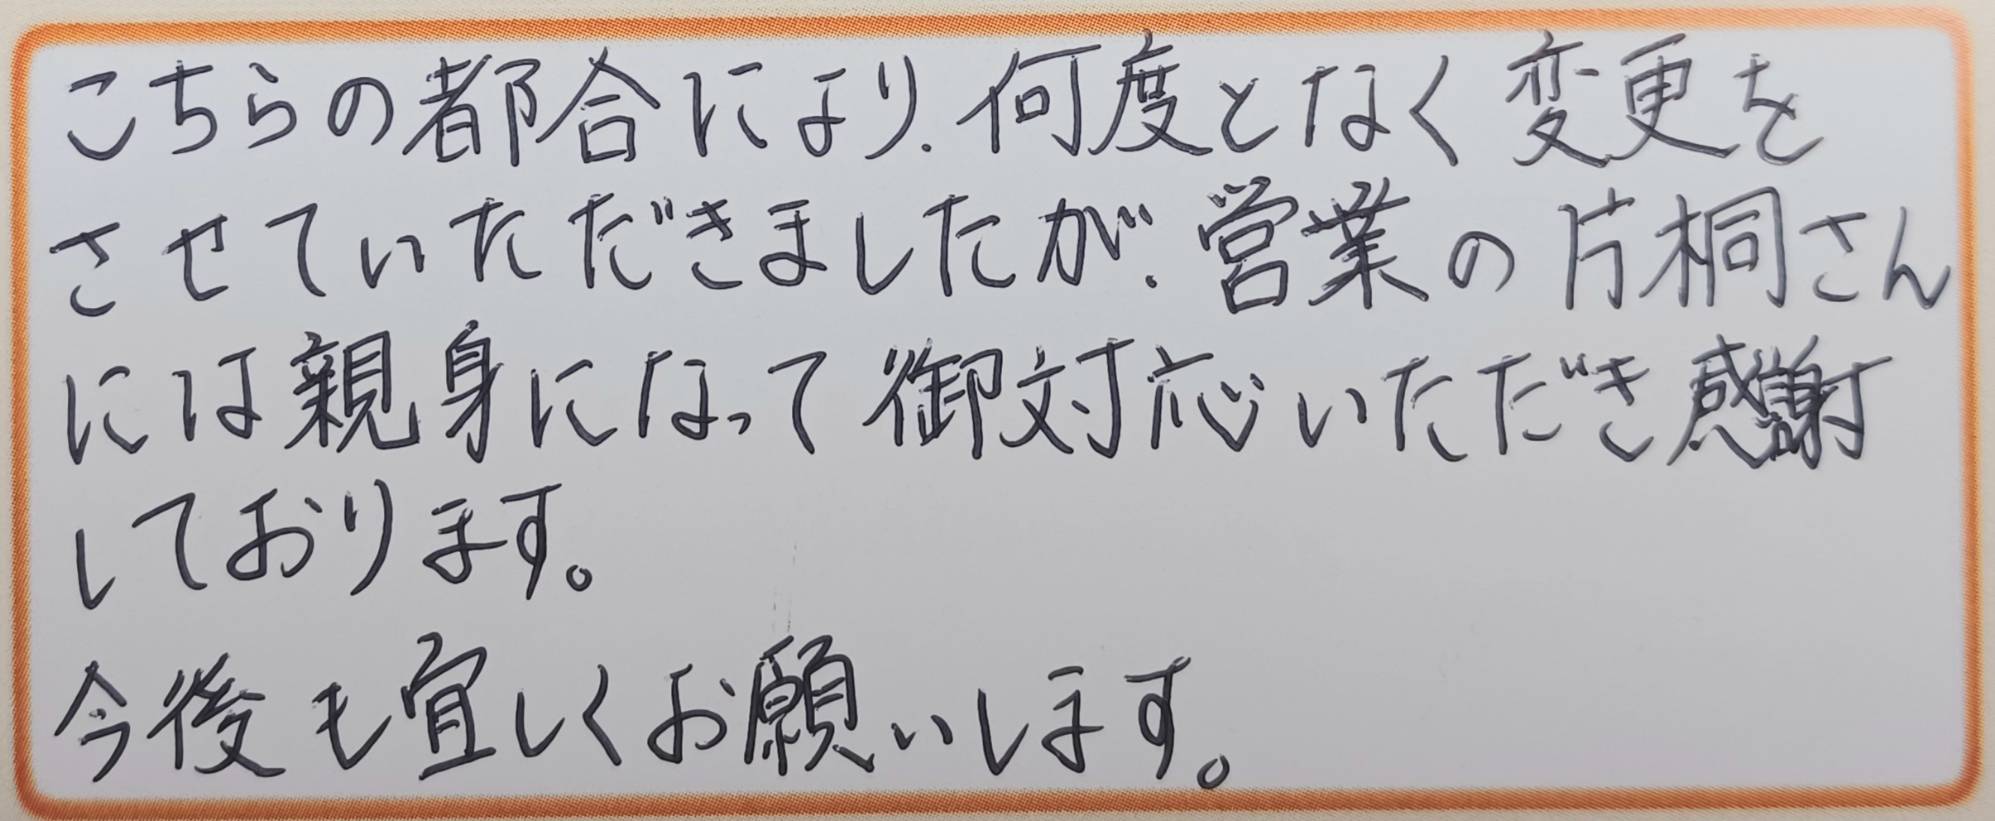 こちらの都合により、何度となく変更を
させていただきましたが、営業の片桐さん
には親身になって御対応いただき感謝
しております。
今後も宜しくお願いします。